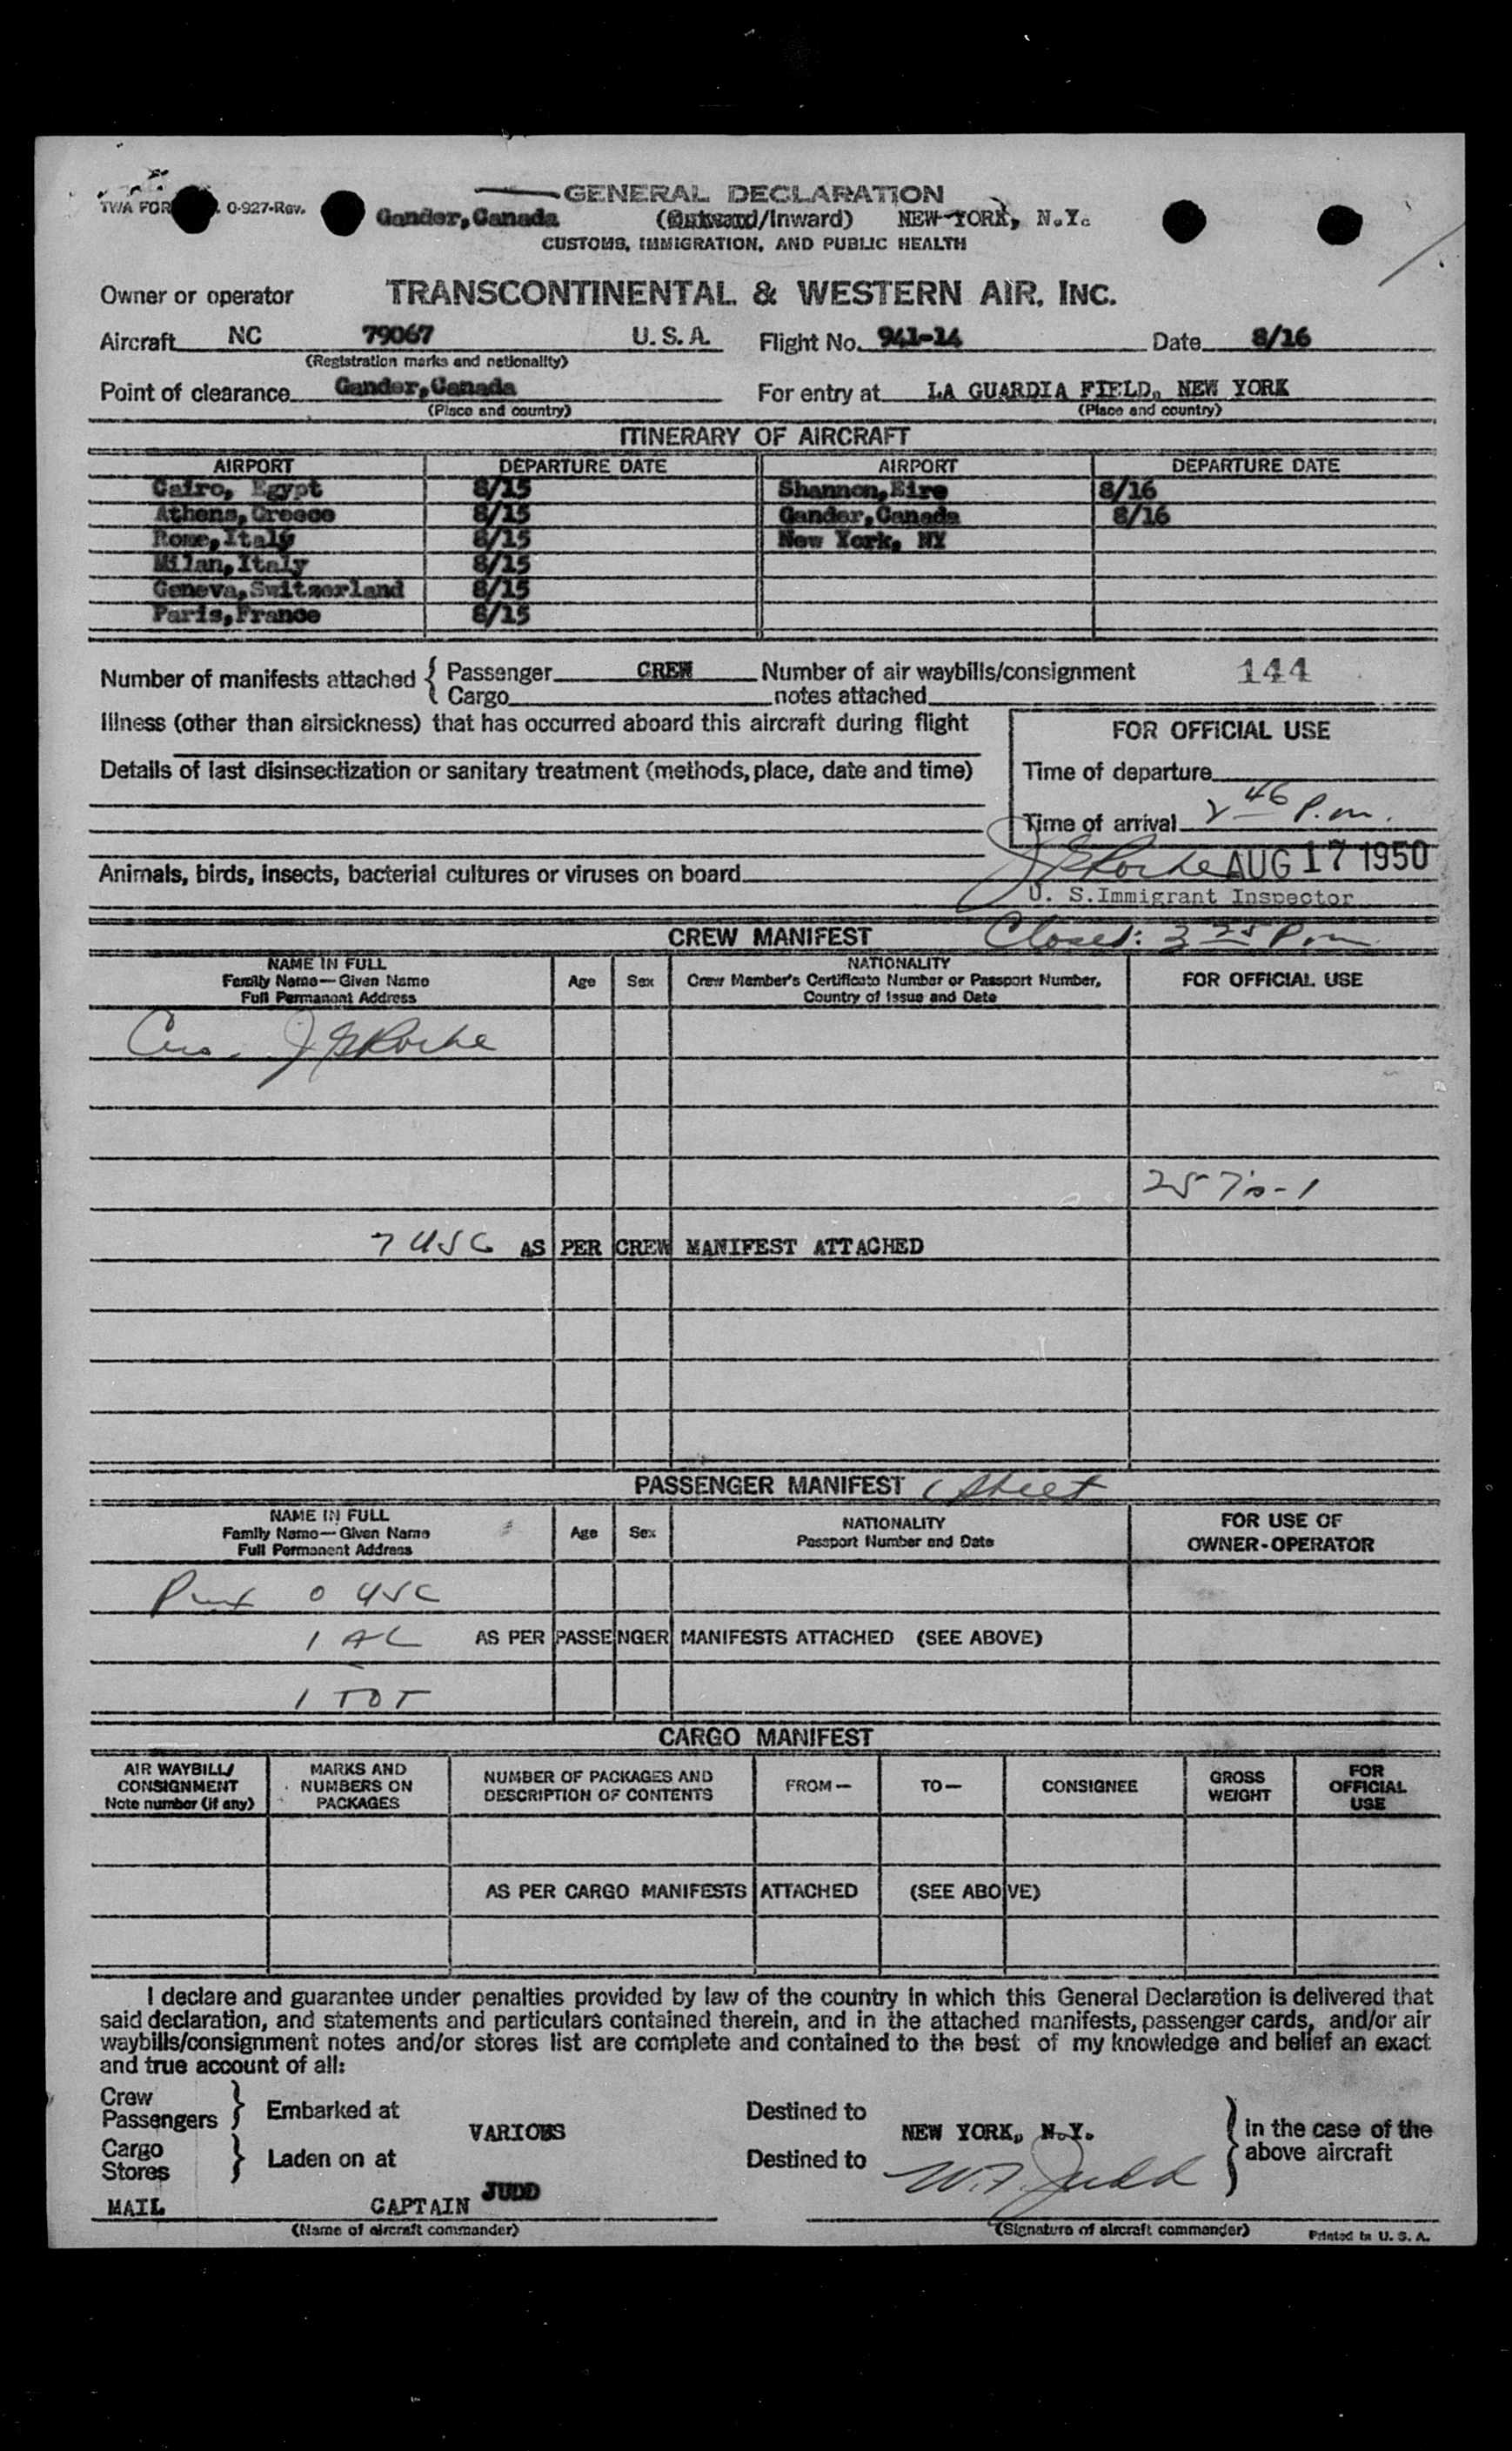 GENERAL DECLARATION
TWA FOR 0-927-Rev. Gander,Canada (Outward/Inward) NEW YORK, N.Y.
CUSTOMS, IMMIGRATION, AND PUBLIC HEALTH
Owner or operator TRANSCONTINENTAL & WESTERN AIR, INC.
Aircraft NC 79067 U. S. A. Flight No. 941-14 Date 8/16
(Registration marks and nationality)
Point of clearance Gander,Canada For entry at LA GUARDIA FIELD, NEW YORK
(Place and country) (Place and country)
ITINERARY OF AIRCRAFT
AIRPORT DEPARTURE DATE AIRPORT DEPARTURE DATE
Cairo, Egypt 8/15 Shannon,Eire 8/16
Athens,Greece 8/15 Gander,Canada 8/16
Rome,Italy 8/15 New York, NY
Milan,Italy 8/15
Geneva,Switzerland 8/15
Paris,France 8/15
Number of manifests attached { Passenger CREW Number of air waybills/consignment 144
Cargo notes attached
Illness (other than airsickness) that has occurred aboard this aircraft during flight
FOR OFFICIAL USE
Details of last disinsectization or sanitary treatment (methods, place, date and time)
Time of departure
Time of arrival 2 46 P.m.
J Roche AUG 17 1950
Animals, birds, insects, bacterial cultures or viruses on board
U. S. Immigrant Inspector
CREW MANIFEST Closed: 3 25 Pm
NAME IN FULL
Family Name—Given Name
Full Permanent Address
Age Sex
NATIONALITY
Crew Member's Certificate Number or Passport Number,
Country of Issue and Date
FOR OFFICIAL USE
J Roche
7 USC AS PER CREW MANIFEST ATTACHED
PASSENGER MANIFEST 1 sheet
NAME IN FULL
Family Name—Given Name
Full Permanent Address
Age Sex
NATIONALITY
Passport Number and Date
FOR USE OF
OWNER-OPERATOR
0 USC
1 AL AS PER PASSENGER MANIFESTS ATTACHED (SEE ABOVE)
1 TOT
CARGO MANIFEST
AIR WAYBILL/
CONSIGNMENT
Note number (if any)
MARKS AND
NUMBERS ON
PACKAGES
NUMBER OF PACKAGES AND
DESCRIPTION OF CONTENTS
FROM— TO— CONSIGNEE
GROSS
WEIGHT
FOR
OFFICIAL
USE
AS PER CARGO MANIFESTS ATTACHED (SEE ABOVE)
I declare and guarantee under penalties provided by law of the country in which this General Declaration is delivered that
said declaration, and statements and particulars contained therein, and in the attached manifests, passenger cards, and/or air
waybills/consignment notes and/or stores list are complete and contained to the best of my knowledge and belief an exact
and true account of all:
Crew
Passengers } Embarked at VARIOUS Destined to NEW YORK, N.Y.
Cargo
Stores } Laden on at Destined to
} in the case of the
above aircraft
W.F. Judd
MAIL CAPTAIN JUDD
(Name of aircraft commander) (Signature of aircraft commander) Printed in U. S. A.